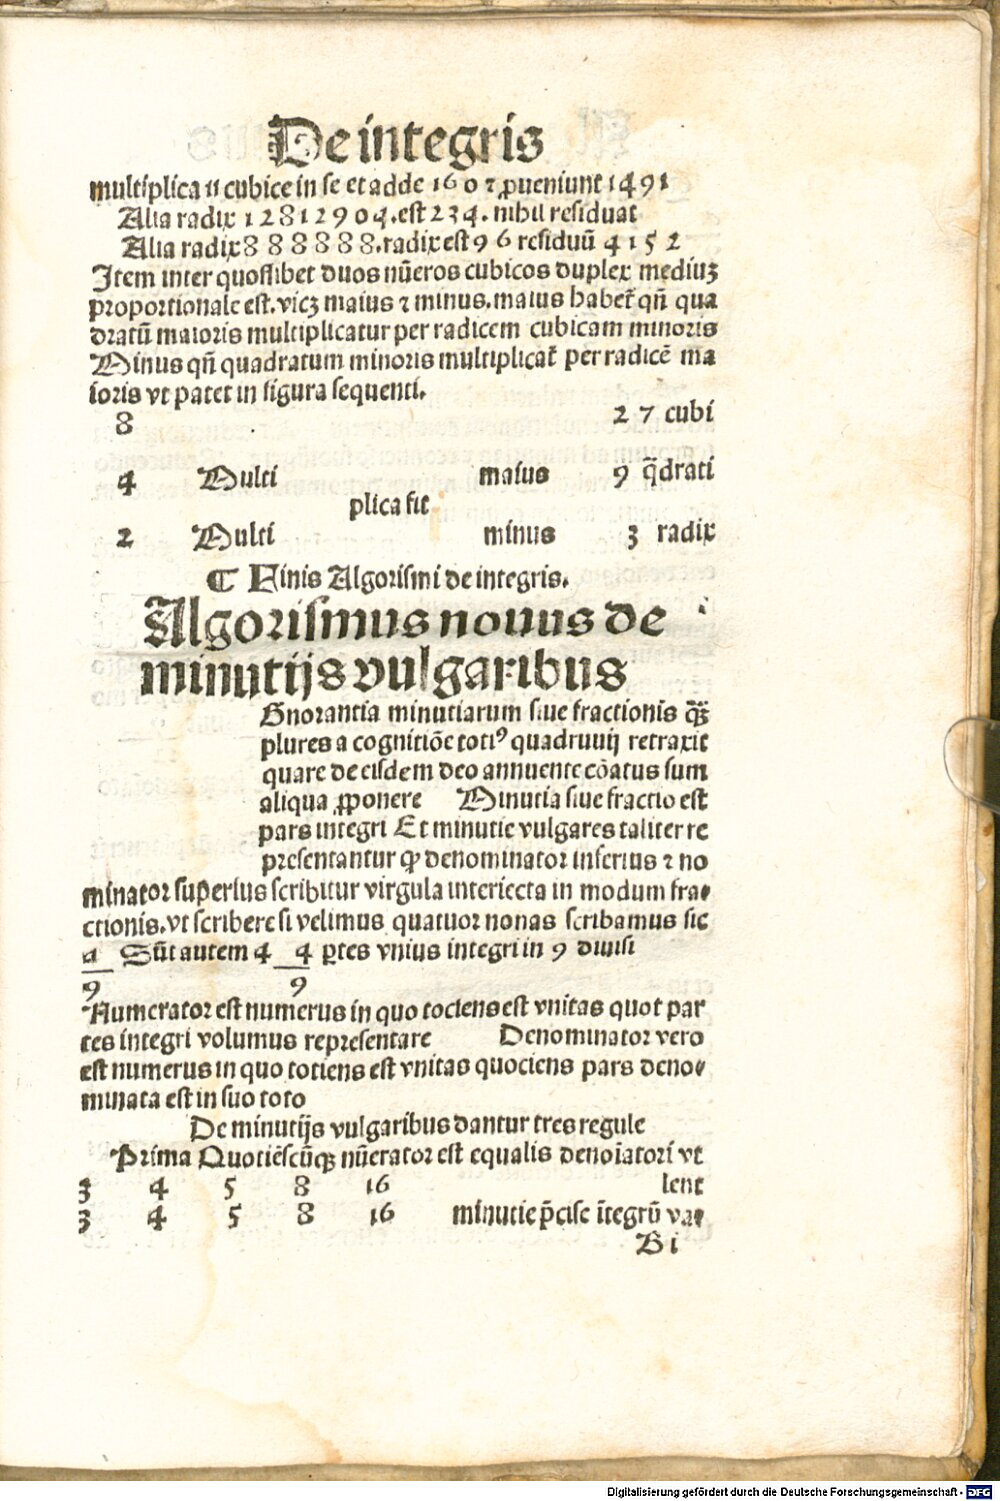 De integris
multiplica 11 cubice in se et adde 160 ⁊ ꝓueniunt 1491
Alia radix 12812904. est 234. nihil residuat
Alia radix 888888. radix est 96 residuū 4152
Item inter quoslibet duos nūeros cubicos duplex mediuꝫ
proportionale est. vicꝫ maius ⁊ minus. maius habet᷑ qn̄ qua
dratū maioris multiplicatur per radicem cubicam minoris
Minus qn̄ quadratum minoris multiplicat᷑ per radicē ma
ioris vt patet in figura sequenti.
8 27 cubi
4 Multi maius 9 q̄drati
plica fit
2 Multi minus 3 radix
⸿ Finis Algorismi de integris.
Algorismus nouus de
minutijs vulgaribus
Gnorantia minutiarum siue fractionis
plures a cognitiōe totiꝰ quadruuij retraxit
quare de eisdem deo annuente cōatus sum
aliqua ꝓponere Minutia siue fractio est
pars integri Et minutie vulgares taliter re
presentantur ꝙ denominator inferius ⁊ no
minator superius scribitur virgula interiecta in modum fra⸗
ctionis. vt scribere si velimus quatuor nonas scribamus sic
4 Sūt autem 4 4 ꝑtes vnius integri in 9 diuisi
9 9
Numerator est numerus in quo tociens est vnitas quot par
tes integri volumus representare Denominator vero
est numerus in quo totiens est vnitas quociens pars deno⸗
minata est in suo toto
De minutijs vulgaribus dantur tres regule
Prima Quotiēscūqꝫ nūerator est equalis denoīatori vt
3 4 5 8 16 lent
3 4 5 8 16 minutie p̄cise īntegrū va⸗
B i
Digitalisierung gefördert durch die Deutsche Forschungsgemeinschaft - DFG